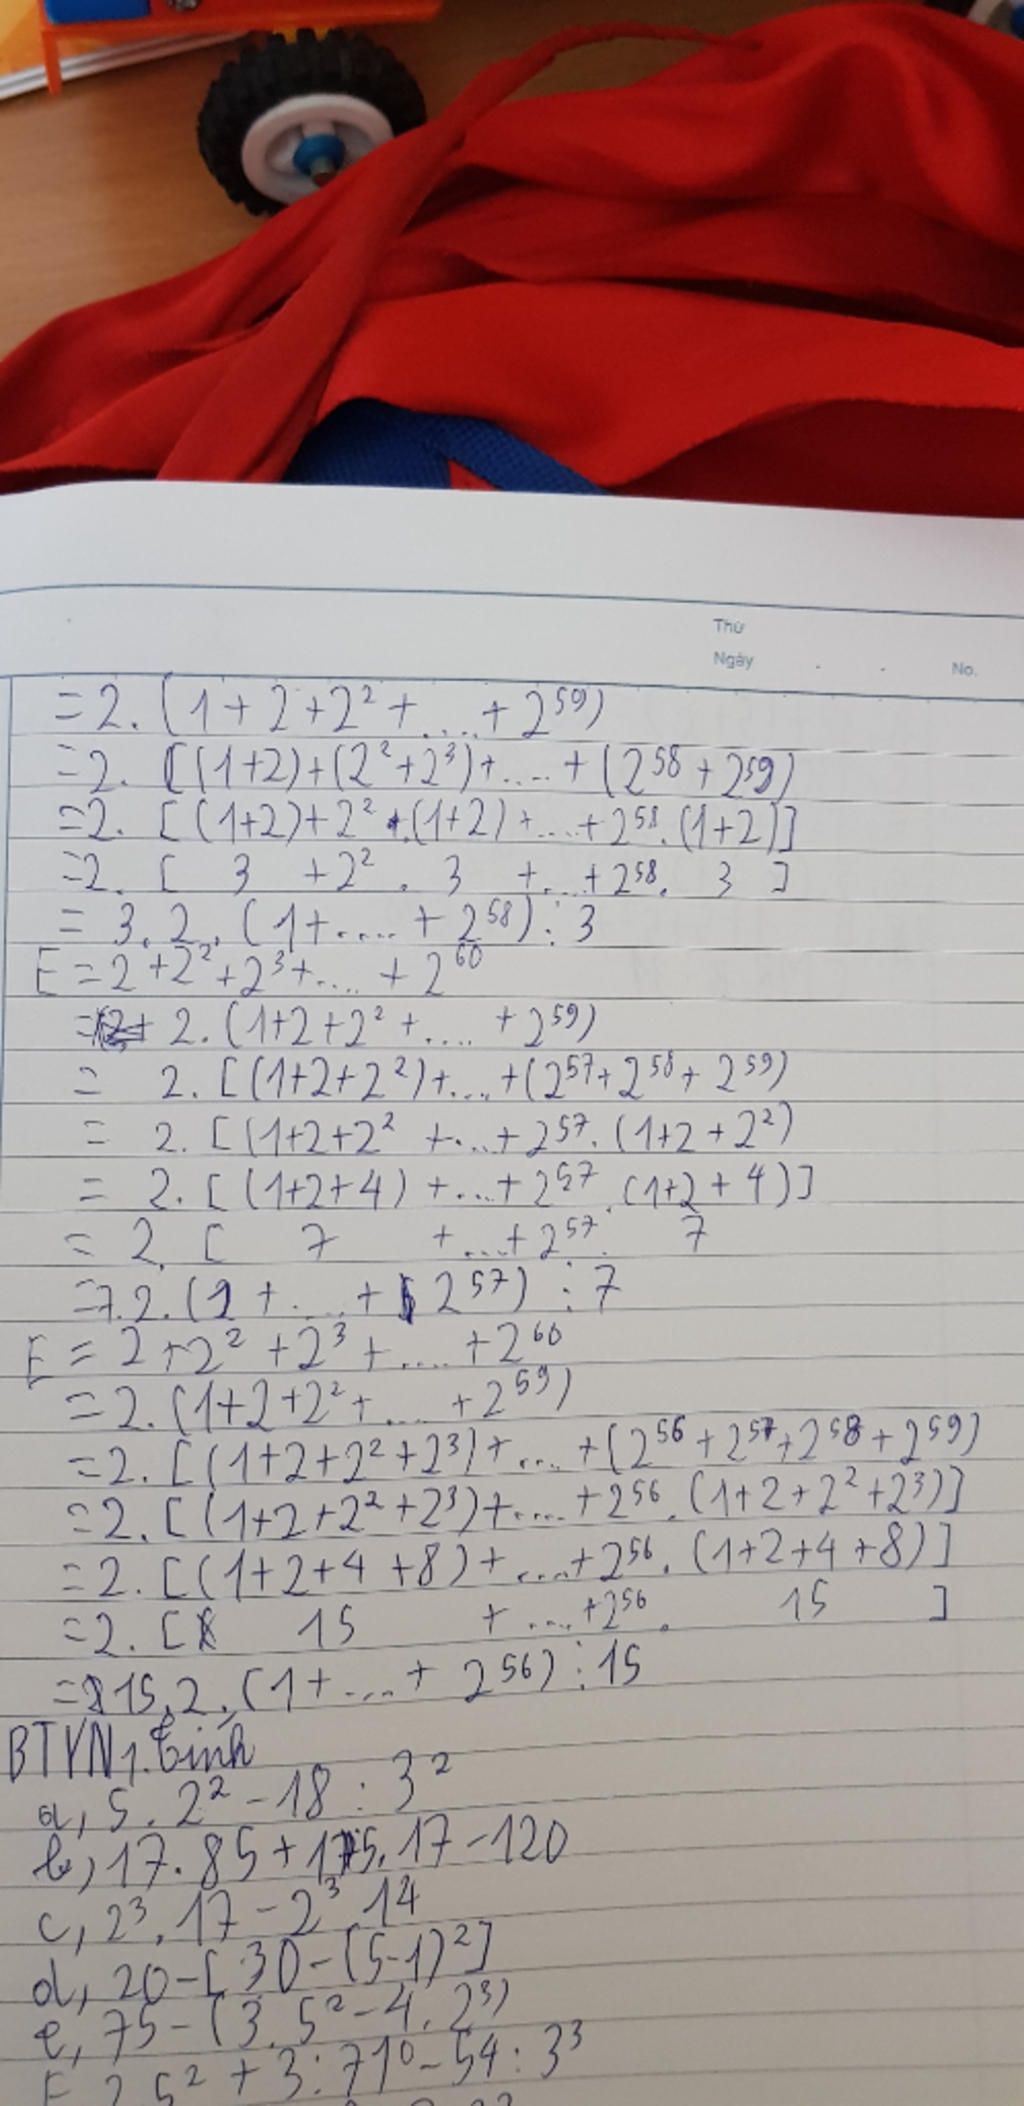 Thứ
Ngày No.
=2. (1+2+2²+....+2⁵⁹)
=2. [(1+2)+(2²+2³)+....+(2⁵⁸+2⁵⁹)
=2. [(1+2)+2².(1+2)+...+2⁵⁸.(1+2)]
=2. [ 3 +2². 3 +...+2⁵⁸. 3 ]
= 3.2.(1+....+2⁵⁸)⋮3
E=2+2²+2³+....+2⁶⁰
= 2.(1+2+2²+....+2⁵⁹)
= 2.[(1+2+2²)+...+(2⁵⁷+2⁵⁸+2⁵⁹)
= 2.[(1+2+2² +...+2⁵⁷.(1+2+2²)
= 2.[(1+2+4)+...+2⁵⁷.(1+2+4)]
= 2.[ 7 +...+2⁵⁷. 7
=7.2.(1+....+2⁵⁷)⋮7
E=2+2²+2³+....+2⁶⁰
=2.(1+2+2²+....+2⁵⁹)
=2.[(1+2+2²+2³)+....+(2⁵⁶+2⁵⁷+2⁵⁸+2⁵⁹)
=2.[(1+2+2²+2³)+....+2⁵⁶.(1+2+2²+2³)]
=2.[(1+2+4+8)+....+2⁵⁶.(1+2+4+8)]
=2.[ 15 +....+2⁵⁶. 15 ]
=15.2.(1+....+2⁵⁶)⋮15
BTVN1.tính
a, 5.2²-18:3²
b, 17.85+15.17-120
c, 2³.17-2³.14
d, 20-[30-(5-1)²]
e, 75-(3.5²-4.2³)
F 2.5²+3:71⁰-54:3³